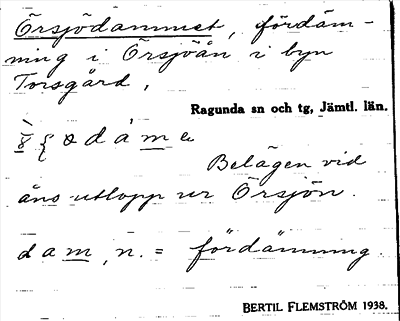 Örsjödammet, fördäm-
ning i Örsjöån i byn
Torsgård,
Ragunda sn och tg, Jämtl. län.
d a m e
Belägen vid
åns utlopp ur Örsjön.
d a m, n. = fördämning.
BERTIL FLEMSTRÖM 1938.